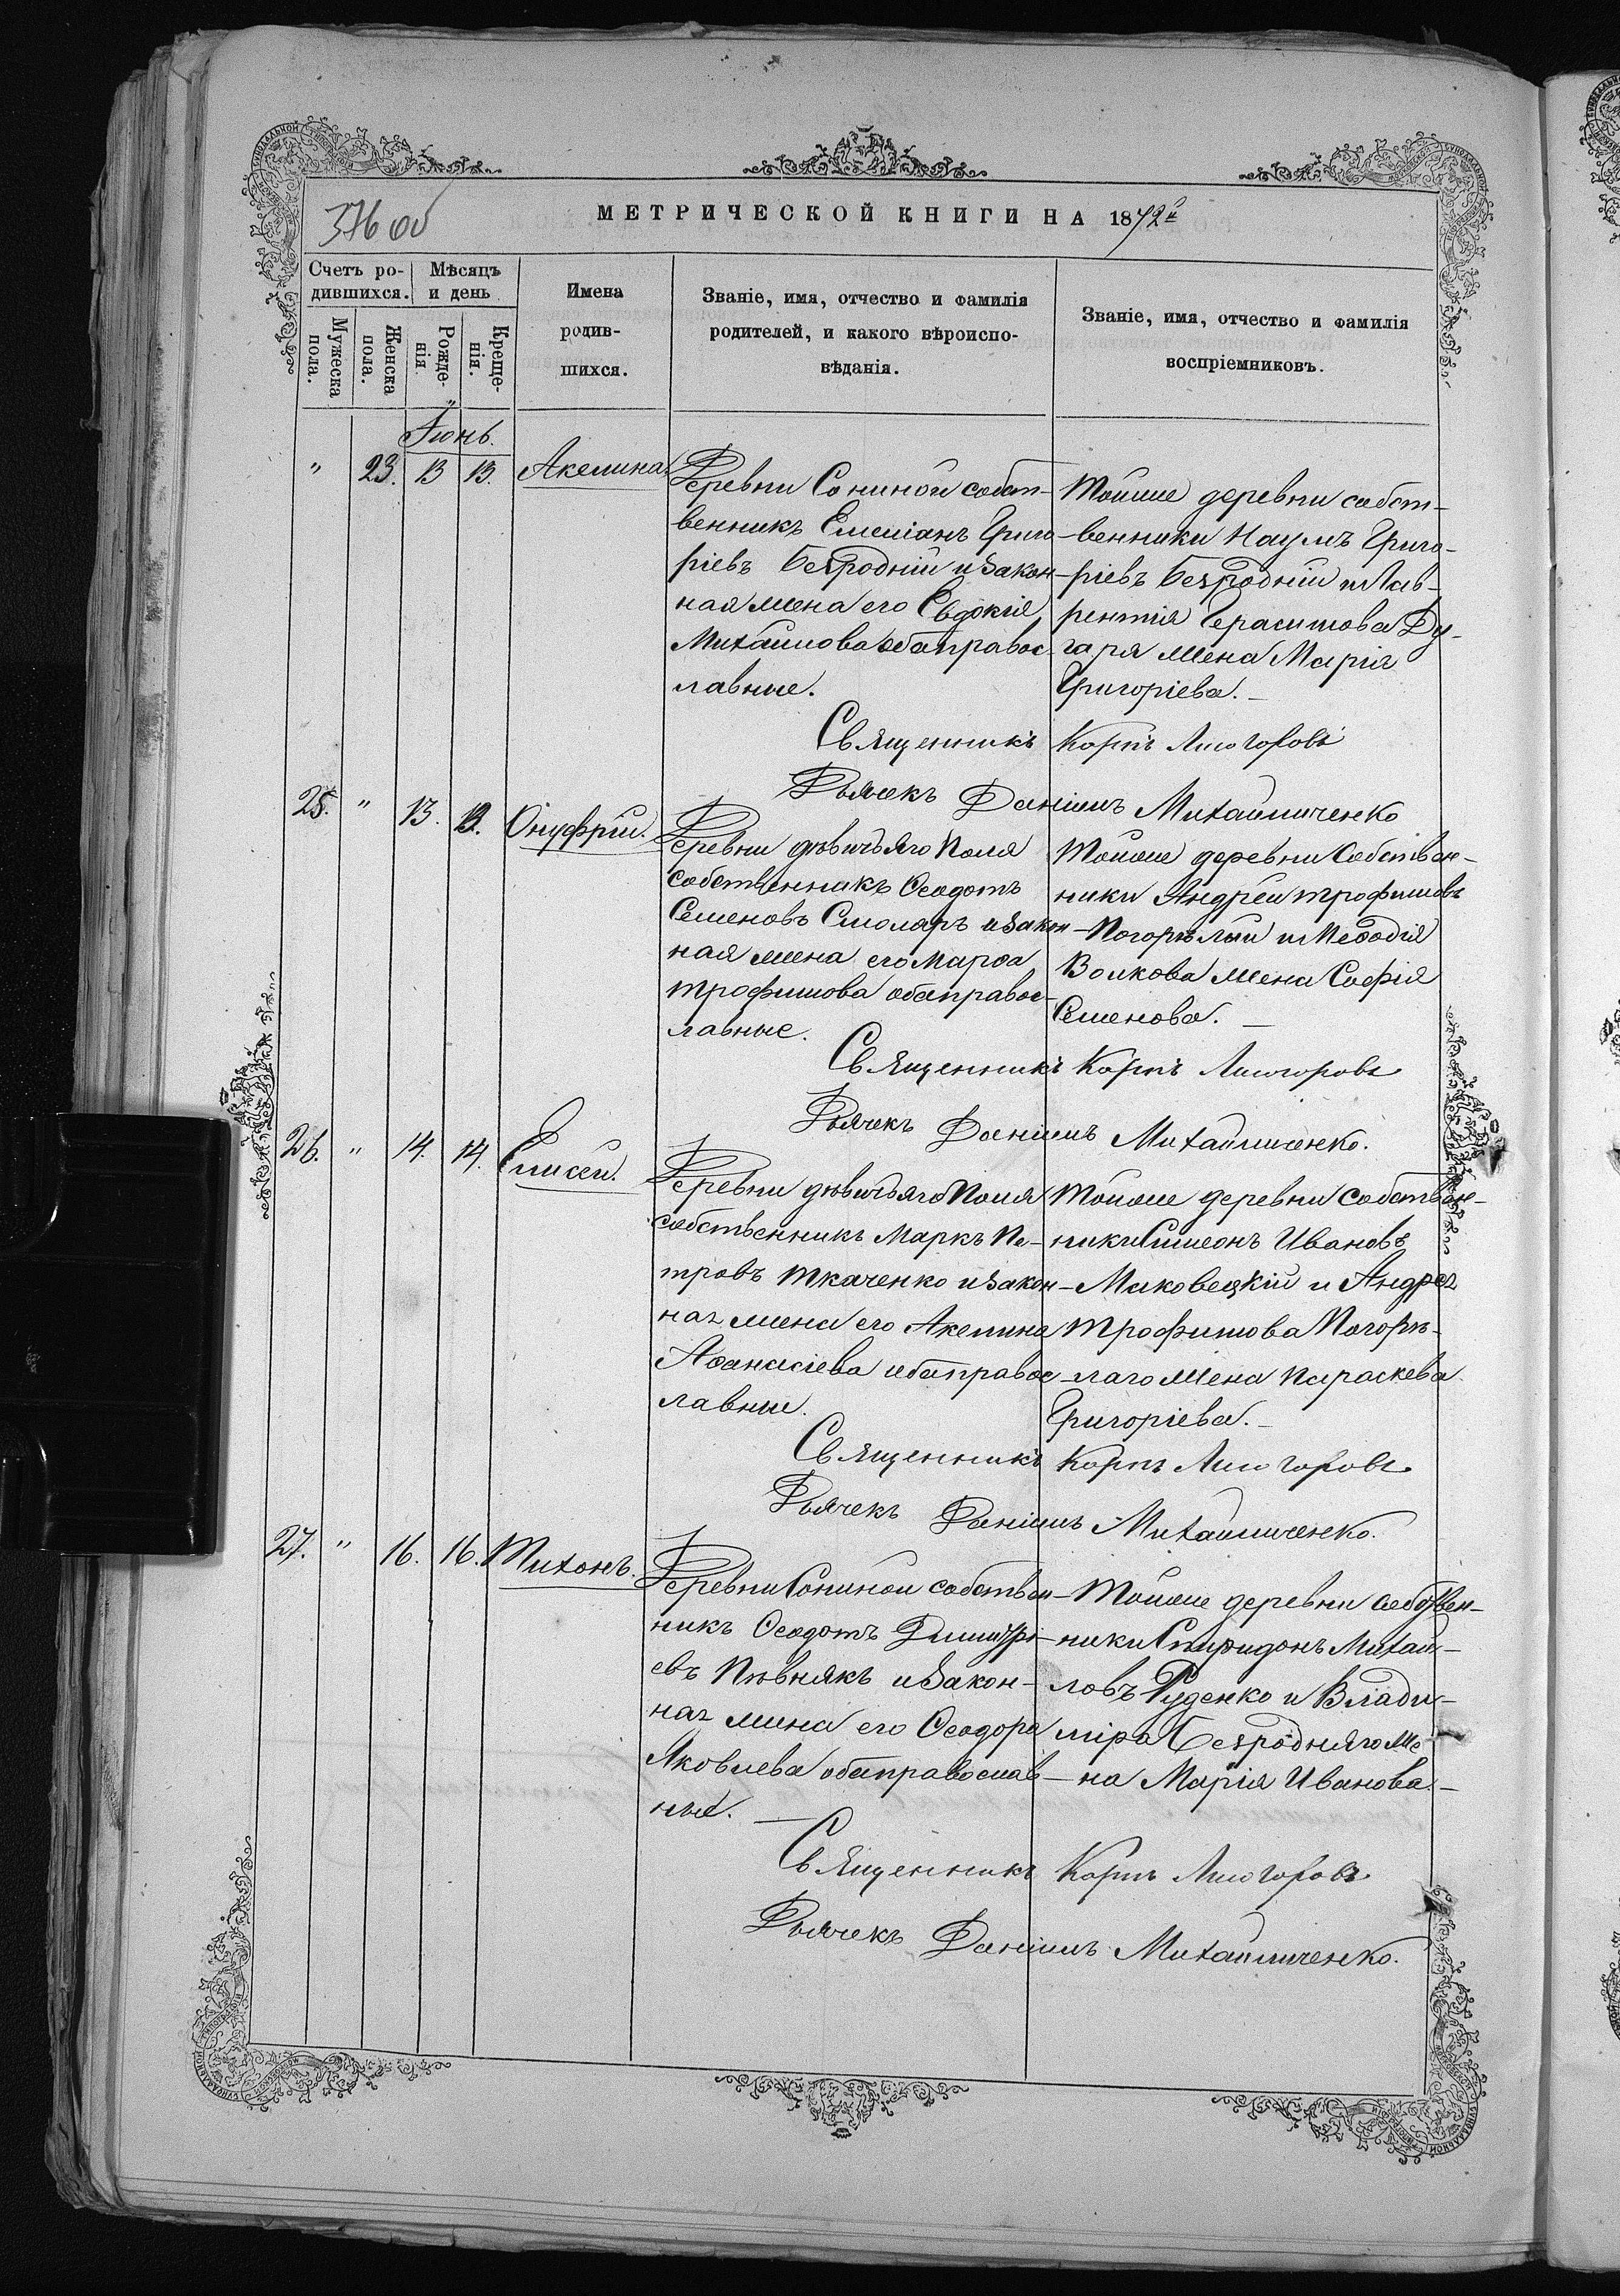 376 об
МЕТРИЧЕСКОЙ КНИГИ НА 1872й
Счетъ ро-
дившихся.
Мужеска
пола.
Женска
пола.
Мѣсяцъ
и день
Рожде-
нія
Креще-
нія.
Имена
родив-
шихся.
Званіе, имя, отчество и фамилія
родителей, и какого вѣроиспо-
вѣданія.
Званіе, имя, отчество и фамилія
воспріемниковъ.
Іюнь.
" 23. 13 13. Акелина.
Деревни Сониной собст-
венникъ Емеліанъ Григо-
ріевъ Безродній и закон-
ная жена его Евдокія
Михайлова оба правос-
лавные.
Тойже деревни собст-
венники Наумъ Григо-
ріевъ Безродній и Лав-
рентія Герасимова Ду-
гаря жена Марія
Григоріева.
Священникъ Карпъ Лисогоровъ
Дьячекъ Даніилъ Михайличенко
25. " 13. 13. Онуфрій.
Деревни дѣвичьяго Поля
собственникъ Ѳеодотъ
Семеновъ Смоляръ и закон-
ная жена его Марѳа
Трофимова оба правос-
лавные.
Тойже деревни собствен-
ники Андрей Трофимовъ
Погорѣлый и Меѳодія
Волкова жена Софія
Семенова.
Священникъ Карпъ Лисогоровъ
Дьячекъ Даніилъ Михайличенко.
26. " 14. 14. Елисей.
Деревни дѣвичьяго Поля
собственникъ Маркъ Пе-
тровъ Ткаченко и закон-
ная жена его Акелина
Аѳанасіева оба правос-
лавные.
Тойже деревни собствен-
ники Симеонъ Ивановъ
Маковецкій и Андрея
Трофимова Погорѣ-
лаго жена Параскева
Григоріева.
Священникъ Карпъ Лисогоровъ
Дьячекъ Даніилъ Михайличенко.
27. " 16. 16. Тихонъ.
Деревни Сониной собствен-
никъ Ѳеодотъ Димитрі-
евъ Пѣвнякъ и закон-
ная жена его Ѳеодора
Яковлева оба православ-
ные.
Тойже деревни собствен-
ники Спиридонъ Михай-
ловъ Руденко и Влади-
міра Безродняго же-
на Марія Иванова.
Священникъ Карпъ Лисогоровъ
Дьячекъ Даніилъ Михайличенко.